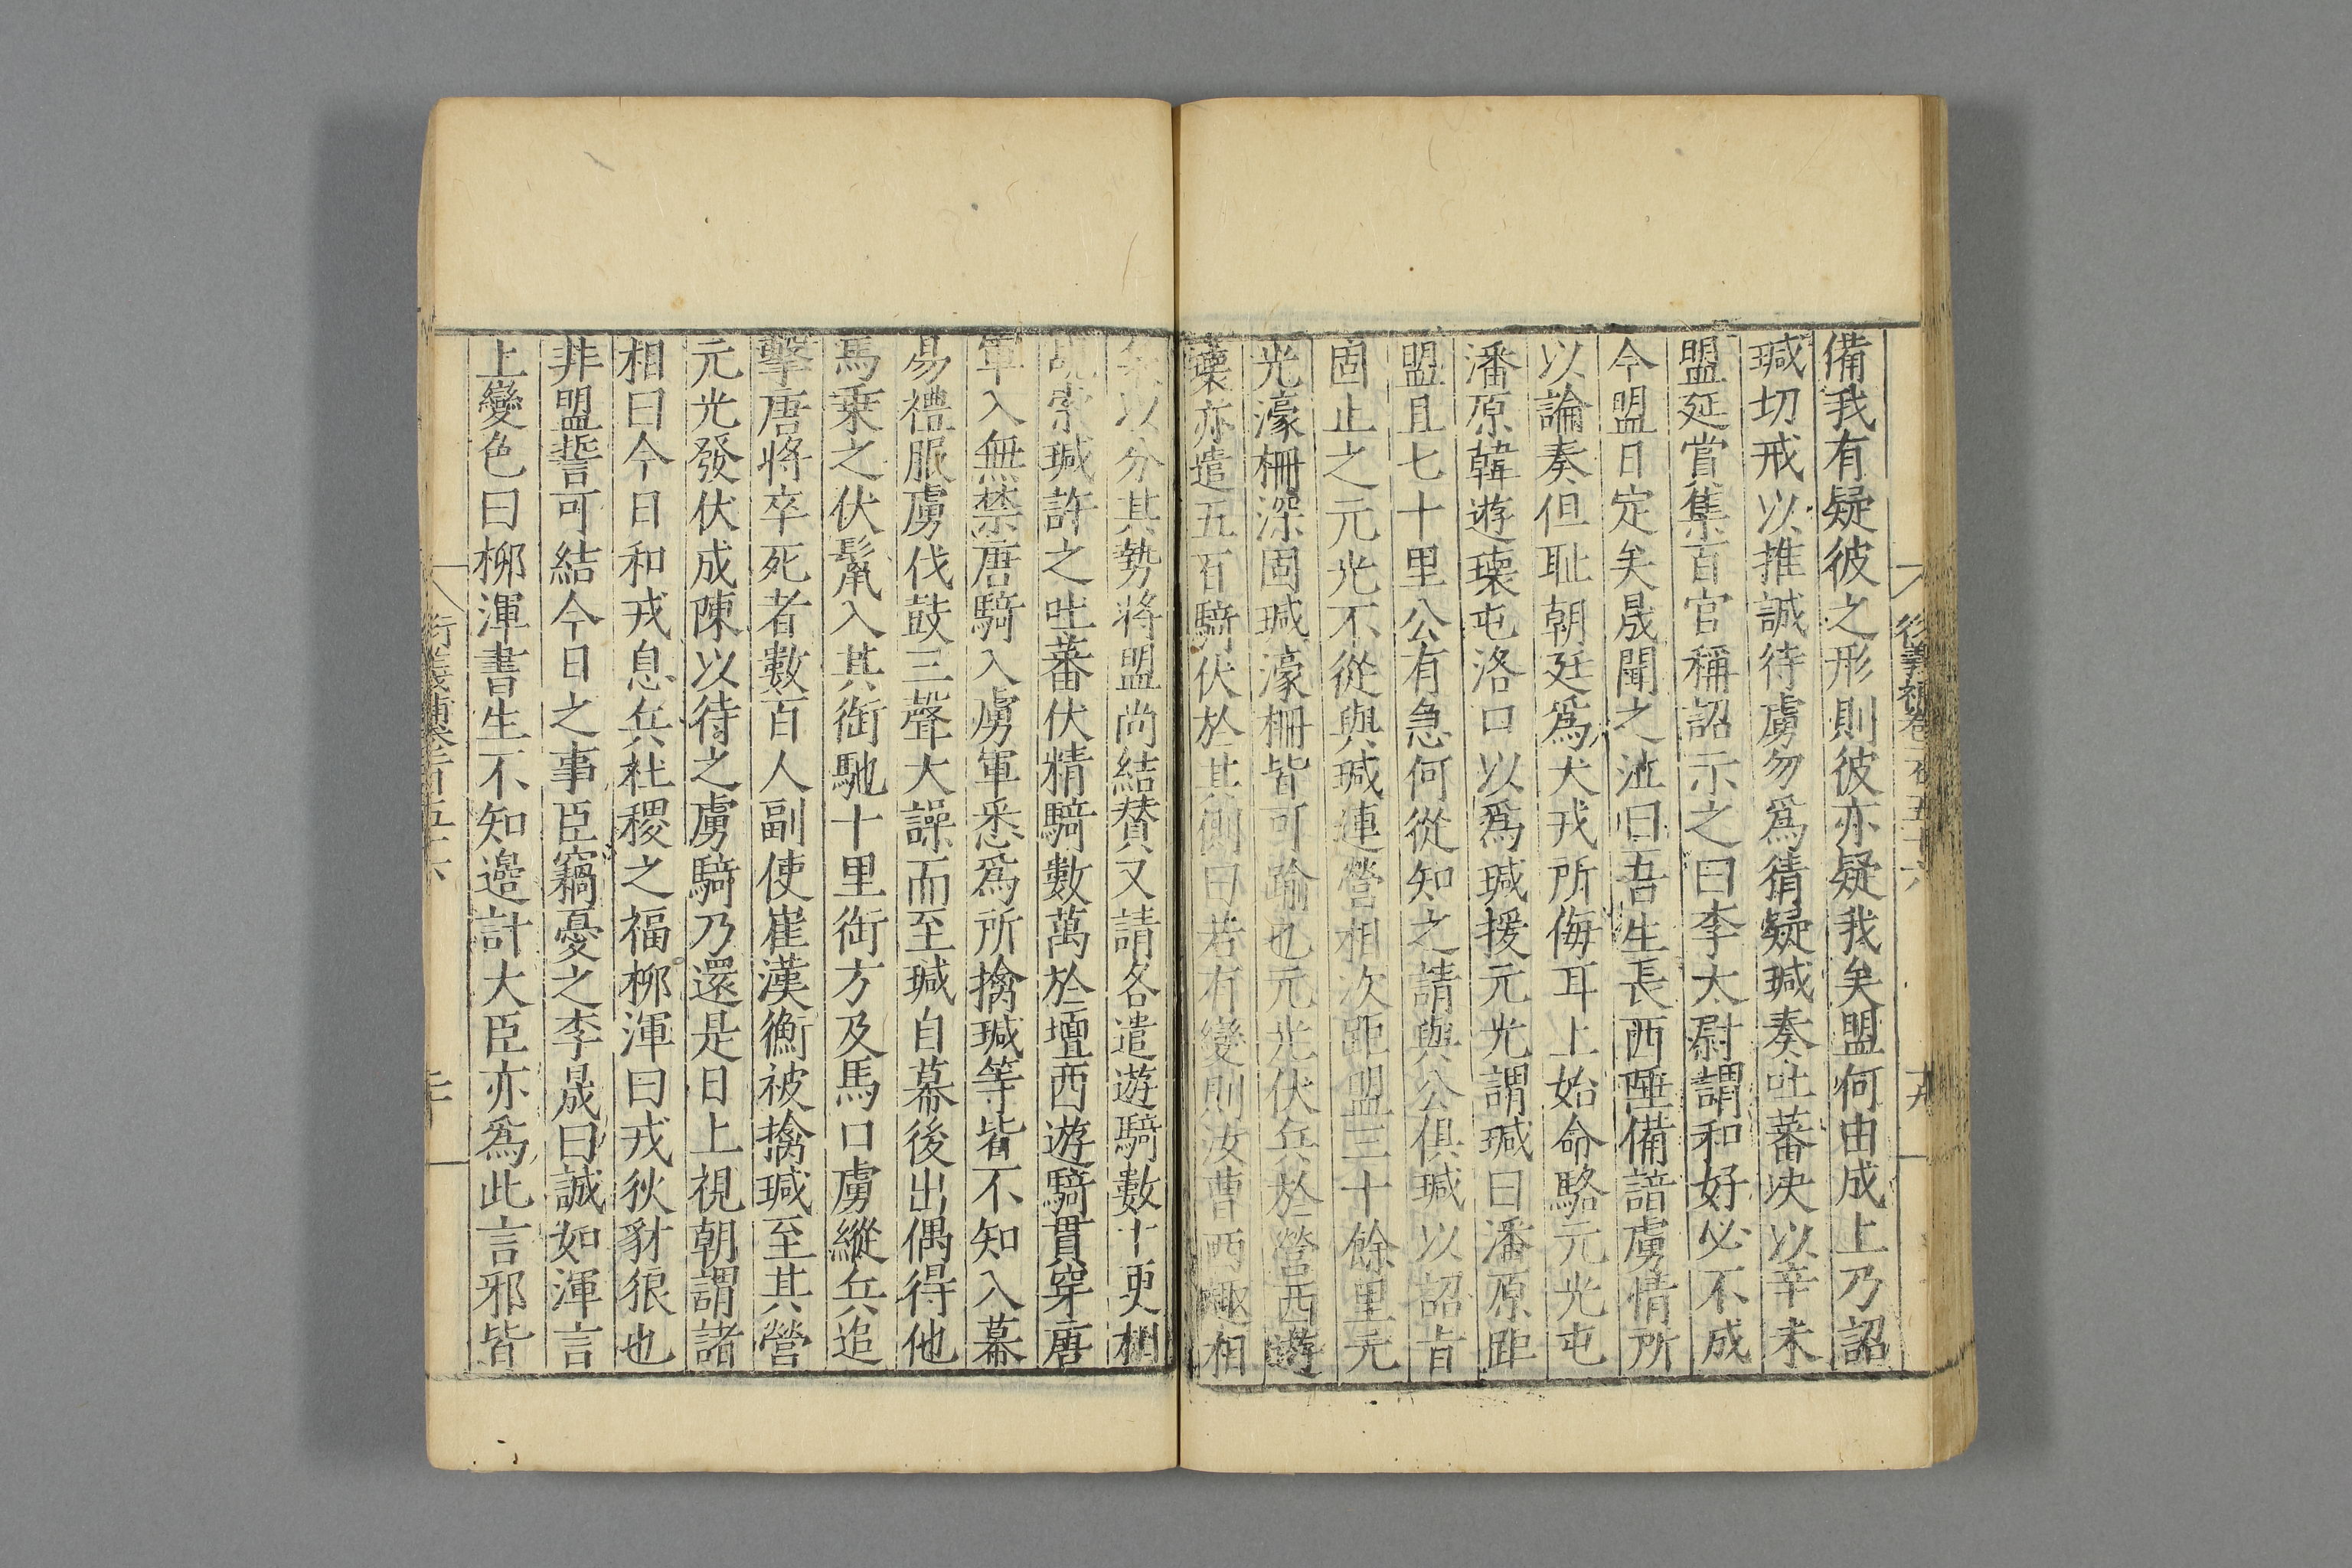 備我有疑彼之形則彼亦疑我矣盟何由成上乃詔
瑊切戒以推誠待虜勿爲猜疑瑊奏吐蕃决以辛未
盟延賞集百官稱詔示之曰李太尉謂和好必不成
今盟日定矣晟聞之泣曰吾生長西陲備諳虜情所
以論奏但耻朝廷爲犬戎所侮耳上始命駱元光屯
潘原韓遊瓌屯洛口以爲瑊援元光謂瑊曰潘原距
盟且七十里公有急何從知之請與公俱瑊以詔旨
固止之元光不從與瑊連營相次距盟三十餘里元
光濠柵深固瑊濠柵皆可踰也元光伏兵於營西遊
瓌亦遣五百騎伏於其側曰若有變則汝曹西趣柏
以分其勢將盟尚結贊又請各遣遊騎數十更相
覘索瑊許之吐蕃伏精騎數萬於壇西遊騎貫穿唐
軍入無禁唐騎入虜軍悉爲所擒瑊等皆不知入幕
易禮服虜伐鼓三聲大譟而至瑊自幕後出偶得他
馬乗之伏鬣入其銜馳十里銜方及馬口虜縱兵追
擊唐將卒死者數百人副使崔漢衡被擒瑊至其營
元光發伏成陳以待之虜騎乃還是日上視朝謂諸
相曰今日和戎息兵社稷之福柳渾曰戎狄豺狼也
非盟誓可結今日之事臣竊憂之李晟曰誠如渾言
上變色曰柳渾書生不知邉計大臣亦爲此言邪皆
衍義補卷一百五十六
十九
衍義補卷一百五十六
二十